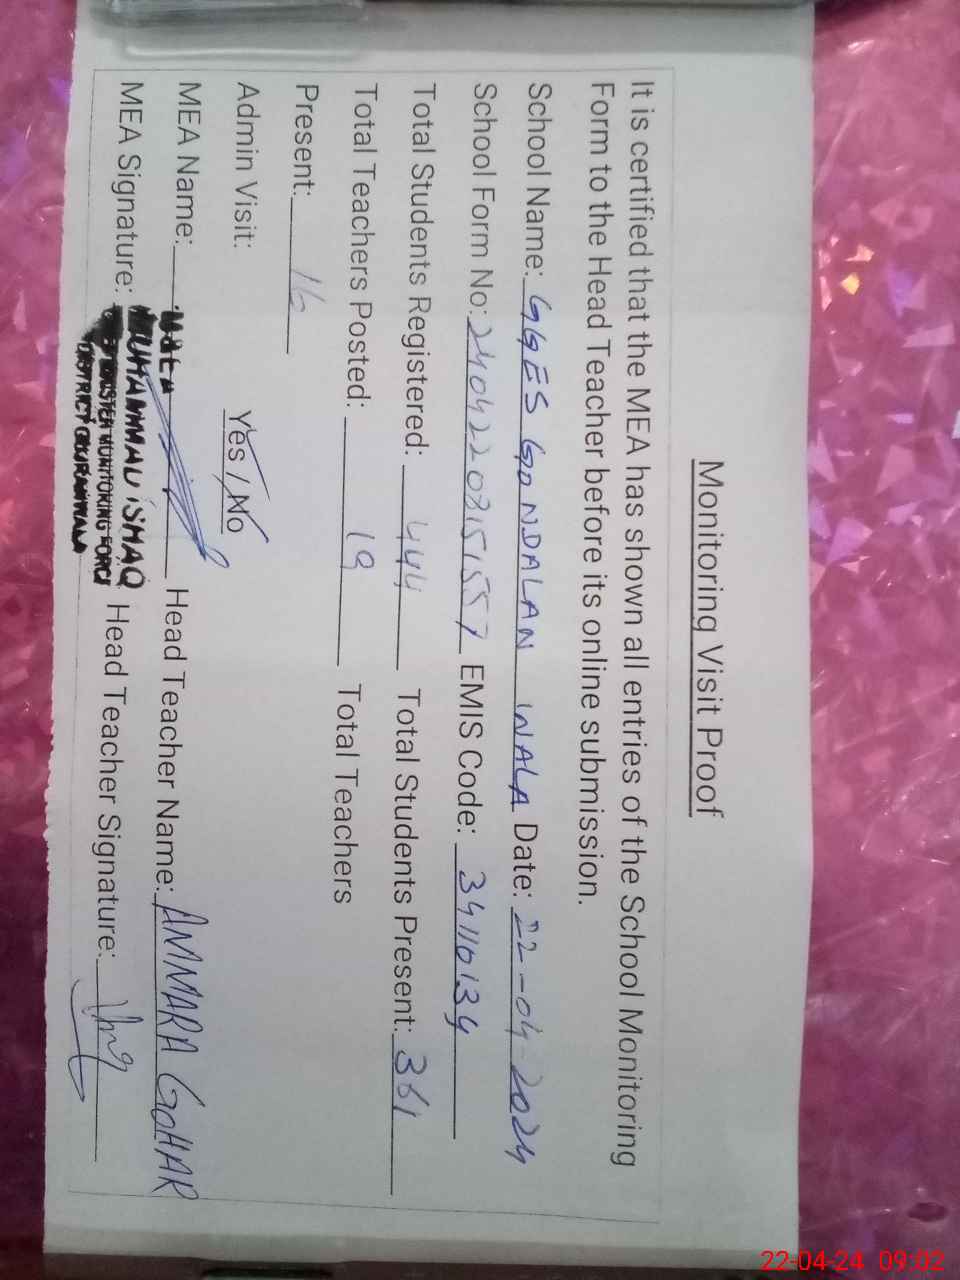 Monitoring Visit Proof
It is certified that the MEA has shown all entries of the School Monitoring
Form to the Head Teacher before its online submission.
School Name: GGES GONDALAN WALA Date: 22-04-2024
School Form No: 24042208151557 EMIS Code: 34110134
Total Students Registered: 444 Total Students Present: 361
Total Teachers Posted: 19 Total Teachers
Present: 16
Admin Visit: Yes / No
MEA Name: Head Teacher Name: AMMARA GOHAR
MEA Signature: MUHAMMAD ISHAQ Head Teacher Signature:
MONITORING FORCE
DISTRICT GUJRANWALA
22-04-24 09:02